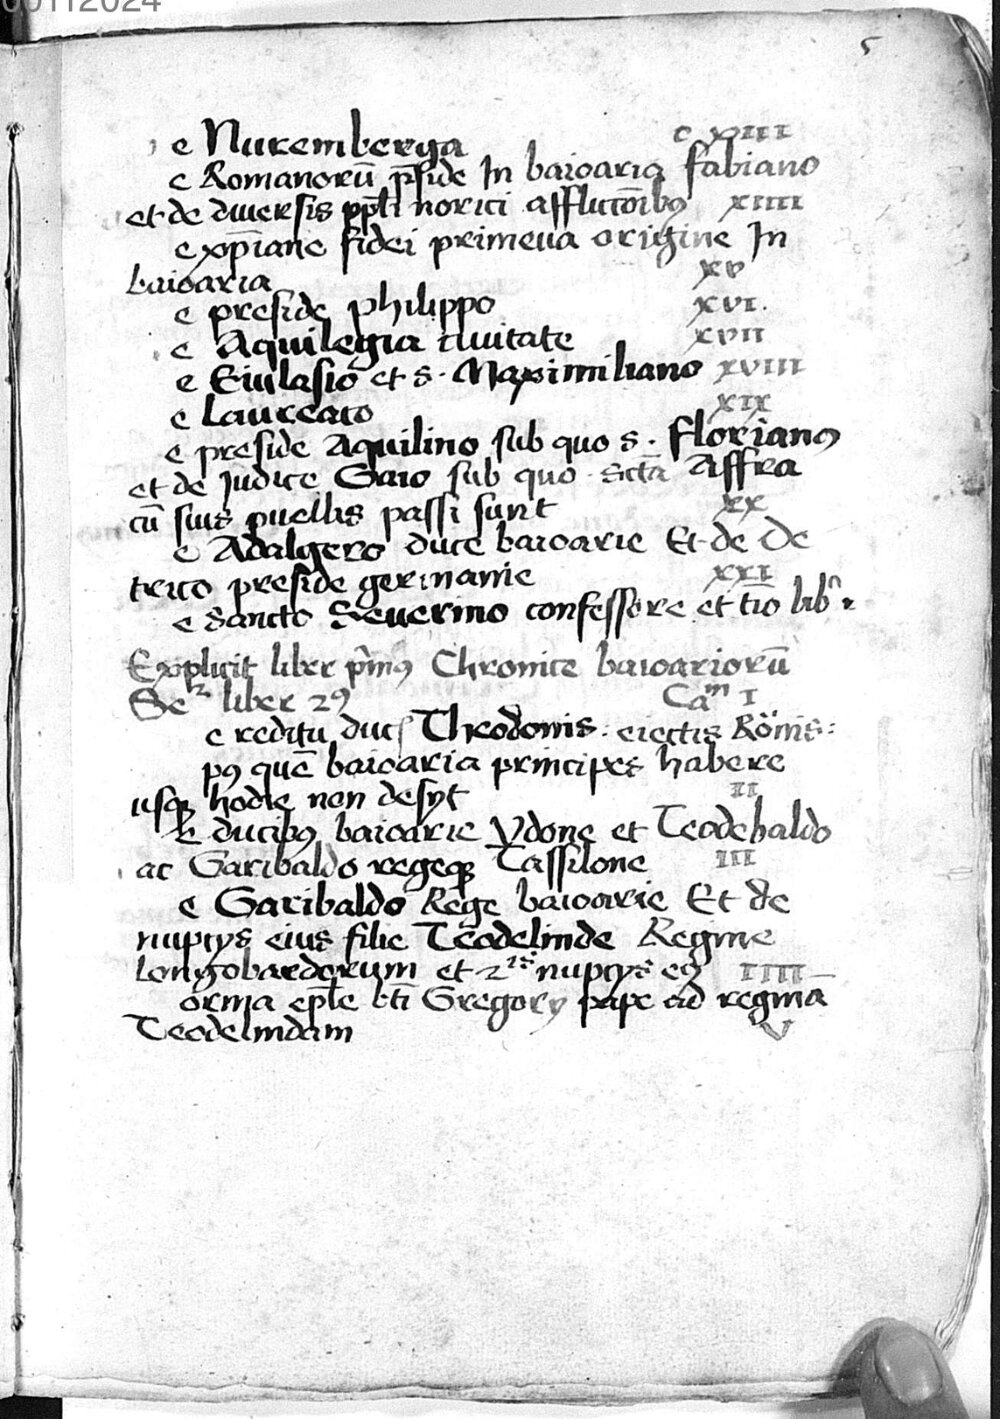 00112024
5
e Nuremberga c xiii
e Romanorū p̄side In baioaria fabiano
et de diuersis pp̄li norici afflictōibꝯ xiiii
e xp̄iane fidei primeua origine In
baioaria xv
e preside philippo xvi.
e Aquilegia ciuitate xvii
e Eiulasio et s. Maximiliano xviii
e Laureaco xix
e preside Aquilino sub quo s. florianꝯ
et de judice Gaio sub quo sctā Affra
cū suis puellis passi sunt xx
e Adalgero duce baioarie Et de De
trico preside germanie xxi
e sancto Seuerino confessore et
Explicit liber p̄mꝯ Chronice baioariorū
liber 2ꝯ Caᵐ I
e reditu Theodonis: eiectis Rōnis:
pꝯ quē baioaria principes habere
usqꝫ hodie non desijt II
e ducibꝯ baioarie Vdone et Teodebaldo
ac Garibaldo regeqꝫ Tassilone III
e Garibaldo Rege baioarie Et de
nuptijs eius filie Teodelinde Regine
Longobardorum et 2ⁱˢ nuptijs eiꝯ IIII
orma ep̄le bt̄i Gregorij pape ad reginā
Teodelindam V